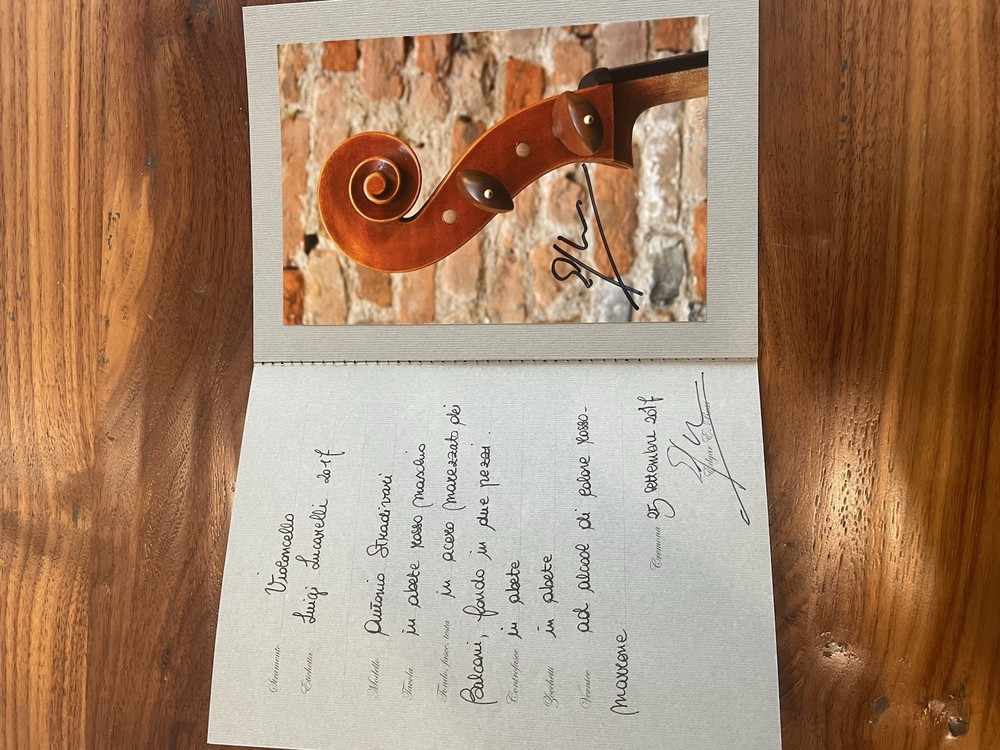 Strumento Violoncello
Etichetta Luigi Lucarelli 2017
Modello Antonio Stradivari
Tavola in abete rosso maschio
Fondo, fasce, testa in acero marezzato dei
Balcani, fondo in due pezzi.
Controfasce in abete
Zocchetti in abete
Vernice ad alcool di colore rosso-
marrone
Cremona 25 settembre 2017